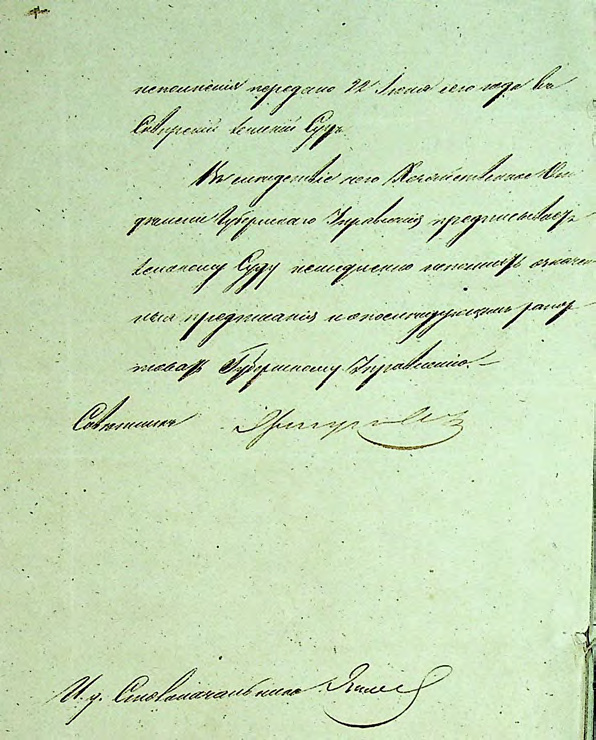 исполненія передано 22 Іюня сего года въ
Земскій Судъ
Въ слѣдствіе чего Хозяйственное Отдѣленіе
Губернскаго Управленія предписываетъ
Земскому Суду немедленно исполнить означен
ныя предписанія и о послѣдующемъ рапор
товать Губернскому Правленію.
Совѣтникъ
И. д. Столоначальника